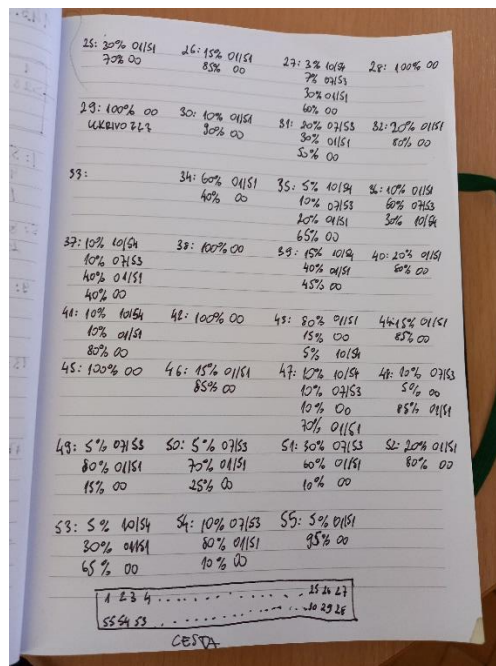 25: 30% 01/51
70% 00
26: 15% 01/51
85% 00
27: 3% 10/54
7% 07/53
30% 01/51
60% 00
28: 100% 00
29: 100% 00
30: 10% 01/51
90% 00
31: 20% 07/53
30% 01/51
50% 00
32: 20% 01/51
80% 00
33:
34: 60% 01/51
40% 00
35: 5% 10/54
10% 07/53
20% 01/51
65% 00
36: 10% 01/51
60% 07/53
30% 10/54
37: 10% 10/54
10% 07/53
40% 01/51
40% 00
38: 100% 00
39: 15% 10/54
40% 01/51
45% 00
40: 20% 01/51
80% 00
41: 10% 10/54
10% 01/51
80% 00
42: 100% 00
43: 80% 01/51
15% 00
5% 10/54
44: 15% 01/51
85% 00
45: 100% 00
46: 15% 01/51
85% 00
47: 10% 10/54
10% 07/53
10% 00
70% 01/51
48: 10% 07/53
5% 00
85% 01/51
49: 5% 07/53
80% 01/51
15% 00
50: 5% 07/53
70% 01/51
25% 00
51: 30% 07/53
60% 01/51
10% 00
52: 20% 01/51
80% 00
53: 5% 10/54
30% 01/51
65% 00
54: 10% 07/53
80% 01/51
10% 00
55: 5% 01/51
95% 00
1 2 3 4 . . . . . . . . . . . . . 25 26 27
55 54 53 . . . . . . . . . . . . 30 29 28
CESTA